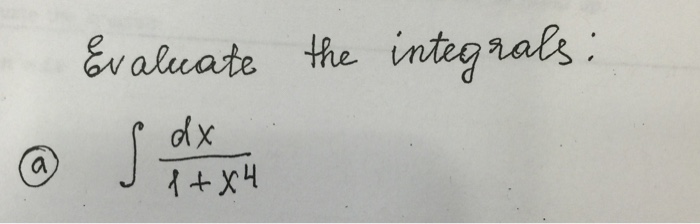 Evaluate the integrals:
(a) ∫ dx / (1 + x^4)